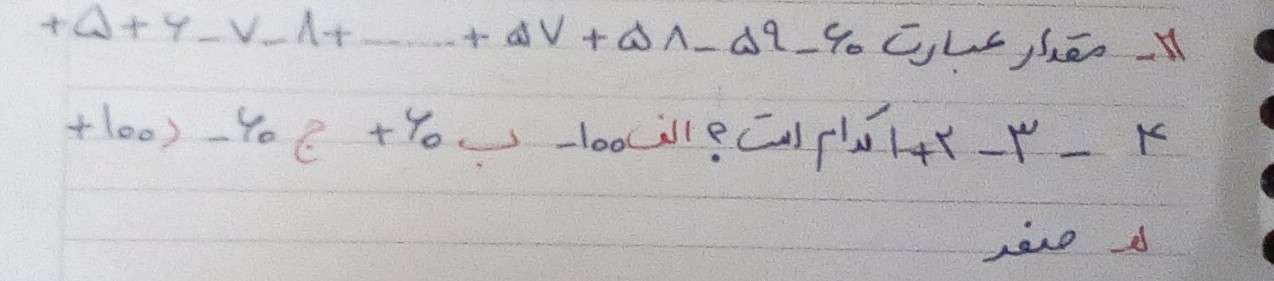 ۷ـ مقدار عبارت ۶۰ـ ۵۹ـ ۵۸ + ۵۷ + ........ +۸ـ ۷ـ ۶ + ۵ +
۴ ـ ۳ـ ۲ +۱ کدام است؟ الف ۱۰۰ـ ب ۶۰ + ج ۶۰ـ د ۱۰۰+
ه صفر